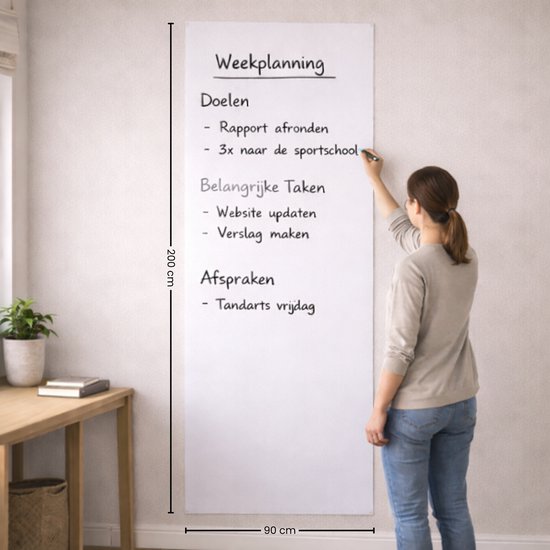 Weekplanning
Doelen
- Rapport afronden
- 3x naar de sportschool
Belangrijke Taken
- Website updaten
- Verslag maken
Afspraken
- Tandarts vrijdag
200 cm
90 cm